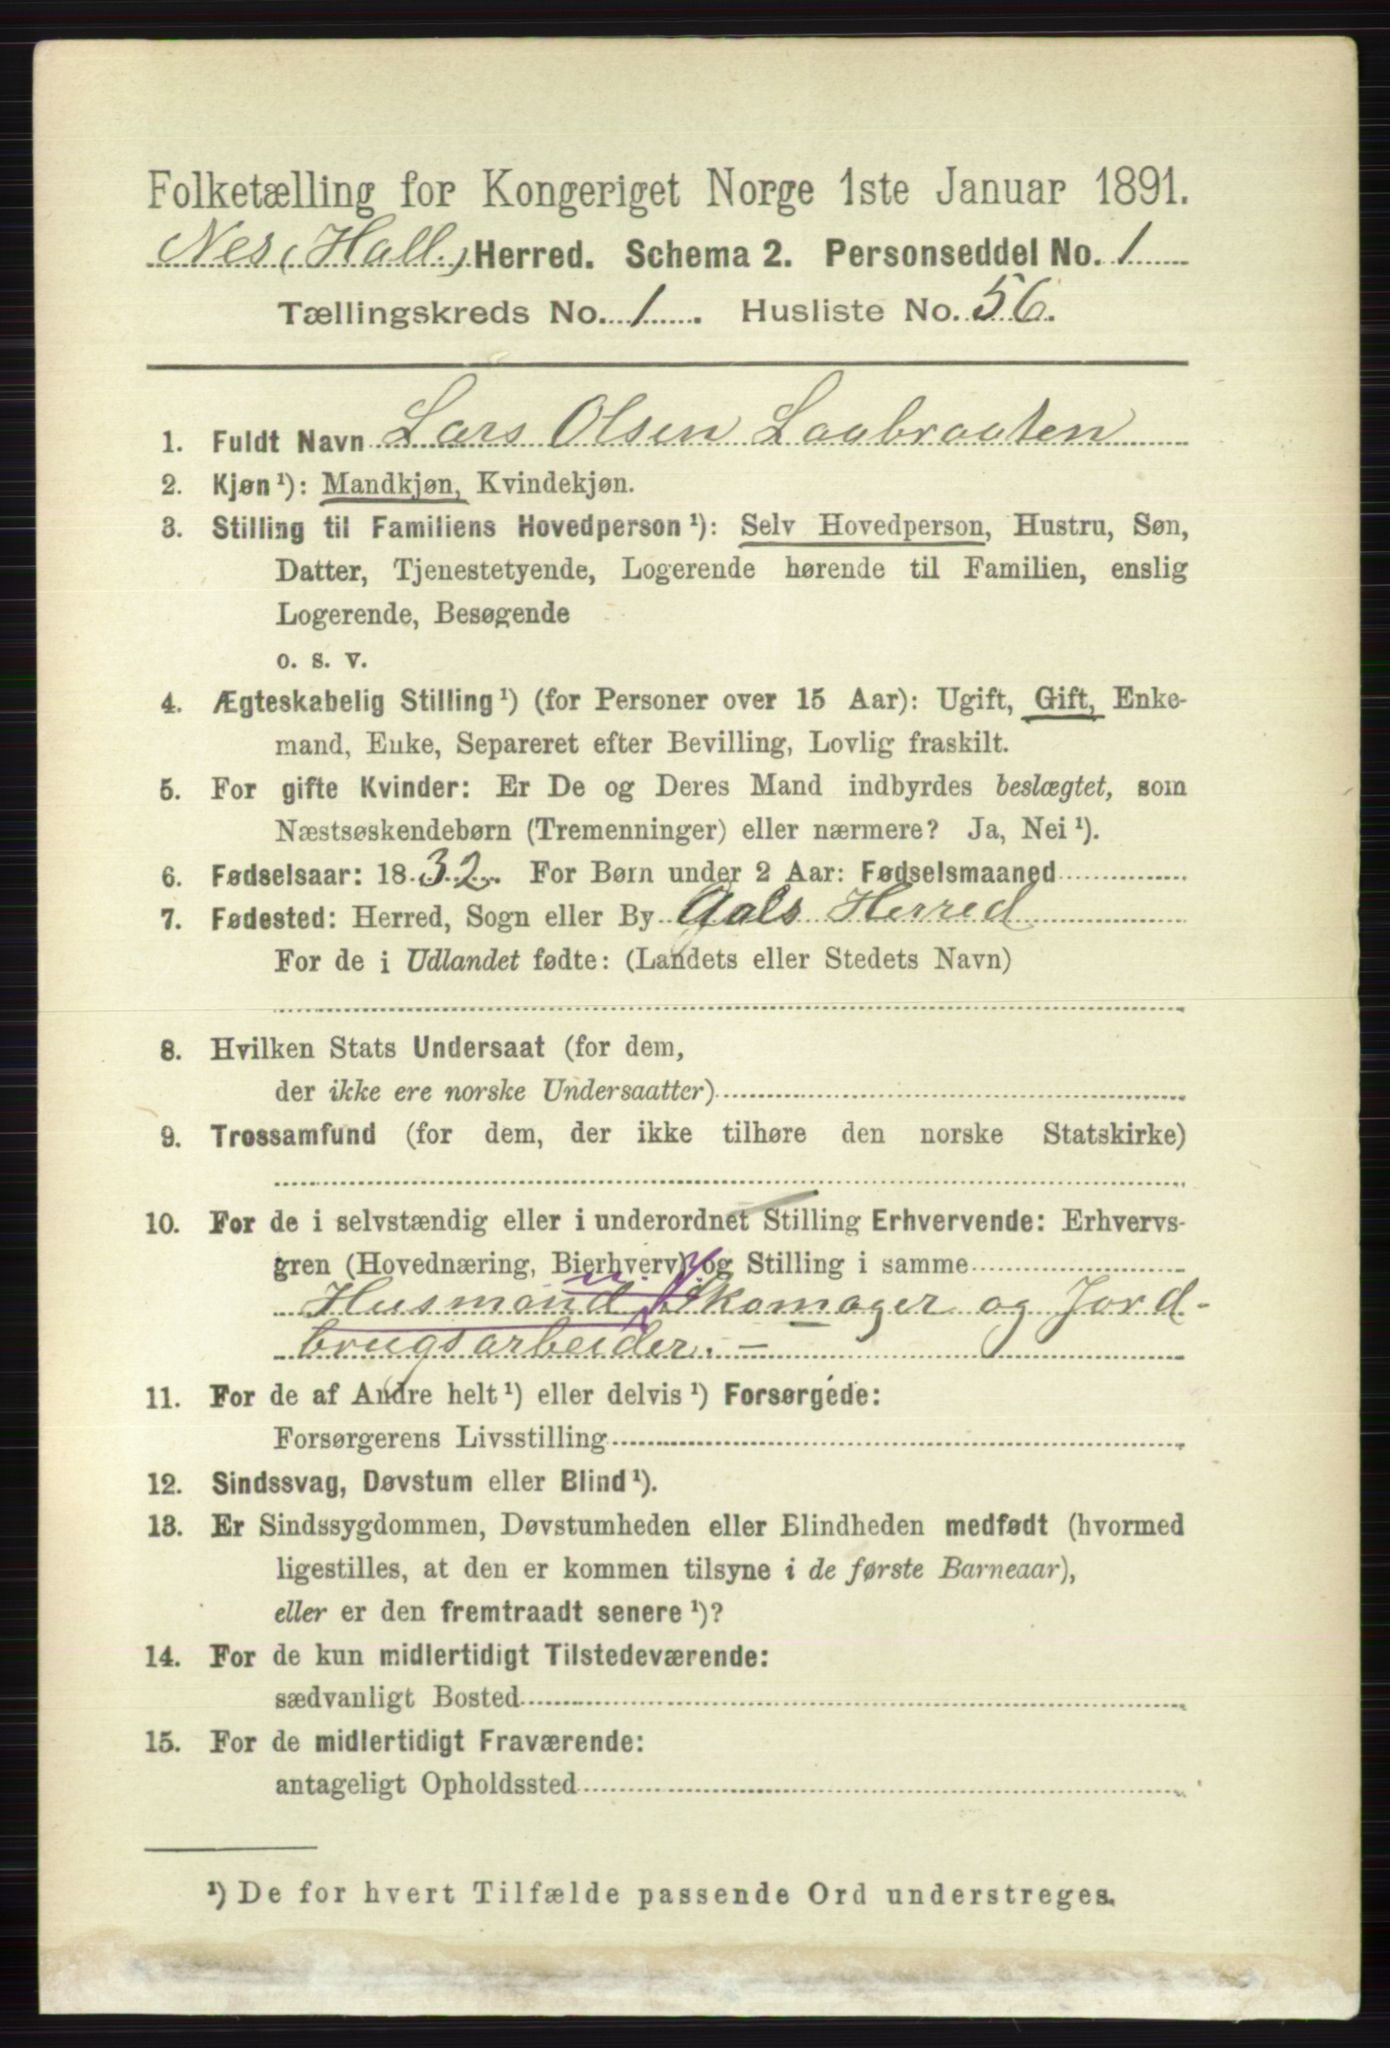 Folketælling for Kongeriget Norge 1ste Januar 1891.
Nes (Hall.) Herred. Schema 2. Personseddel No. 1
Tællingskreds No. 1. Husliste No. 56.
1. Fuldt Navn Lars Olsen Laabraaten
2. Kjøn ¹): Mandkjøn, Kvindekjøn.
3. Stilling til Familiens Hovedperson ¹): Selv Hovedperson, Hustru, Søn,
Datter, Tjenestetyende, Logerende hørende til Familien, enslig
Logerende, Besøgende
o. s. v.
4. Ægteskabelig Stilling ¹) (for Personer over 15 Aar): Ugift, Gift, Enke-
mand, Enke, Separeret efter Bevilling, Lovlig fraskilt.
5. For gifte Kvinder: Er De og Deres Mand indbyrdes beslægtet, som
Næstsøskendebørn (Tremenninger) eller nærmere? Ja, Nei ¹).
6. Fødselsaar: 1832. For Børn under 2 Aar: Fødselsmaaned
7. Fødested: Herred, Sogn eller By Gols Herred
For de i Udlandet fødte: (Landets eller Stedets Navn)
8. Hvilken Stats Undersaat (for dem,
der ikke ere norske Undersaatter)
9. Trossamfund (for dem, der ikke tilhøre den norske Statskirke)
10. For de i selvstændig eller i underordnet Stilling Erhvervende: Erhvervs-
gren (Hovednæring, Bierhverv) og Stilling i samme
Husmand, Skomager og Jord-
brugsarbeider. —
11. For de af Andre helt ¹) eller delvis ¹) Forsørgede:
Forsørgerens Livsstilling
12. Sindssvag, Døvstum eller Blind ¹).
13. Er Sindssygdommen, Døvstumheden eller Blindheden medfødt (hvormed
ligestilles, at den er kommen tilsyne i de første Barneaar),
eller er den fremtraadt senere ¹)?
14. For de kun midlertidigt Tilstedeværende:
sædvanligt Bosted
15. For de midlertidigt Fraværende:
antageligt Opholdssted
¹) De for hvert Tilfælde passende Ord understreges.